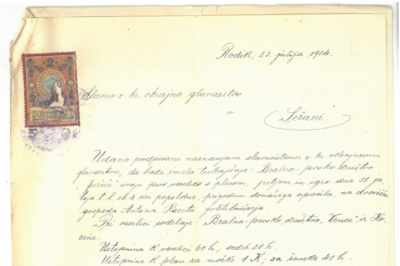 Rodik, 23. julija 1904.
Slavno c. kr. okrajno glavarstvo
v
Sežani
Udano podpisani naznanjam slavnemu c. kr. okrajnemu
glavarstvu, da bode imelo tukajšnje "Bralno-pevsko društvo
svojo prvo veselico s plesom, petjem in igro dne 31. ju-
lija t. l. ob 4 uri popoldne, na dvorišču
gospoda Antona
Pri veselici sodeluje: Bralno-pevsko društvo, iz Ko-
zine.
Ustopnina k veselici 60 h, sedež 20 h.
Ustopnina k plesu za moške 1 K, za ženske 40 h.